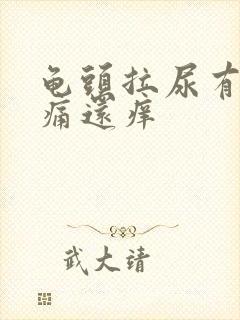 龟頭拉尿有
痛還痒
武大靖